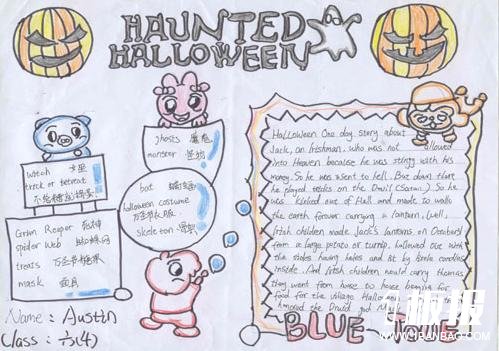 HAUNTED
HALLOWEEN
ghosts 魔鬼
monster 怪物
witch 女巫
trick or tetreat
不给糖就捣蛋
bat 蝙蝠
halloween costume
万圣节衣服
skeleton 骨架
Grim Reaper 死神
spider Web 蜘蛛网
treats 万圣节糖果
mask 面具
Halloween One day story about
Jack, an Irishman, who was not allowed
into Heaven because he was stingy with his
money. So he was sent to hell. But down there
he played tricks on the Devil (Satan). So he
was kicked out of Hell and made to walk
the earth forever carrying a lantern. (well,
Irish childen made Jack's lanterns on October31
from a large potato or turnip, hallowed out with
the sides having holes and lit by little candles
inside. And Irish children would carry themas
they went from house to house begging for
food for the village Hallo
honored the Druid god
BLUE
Name: Austin
Class: 六(4)
板报
WWW.1KANBAO.COM